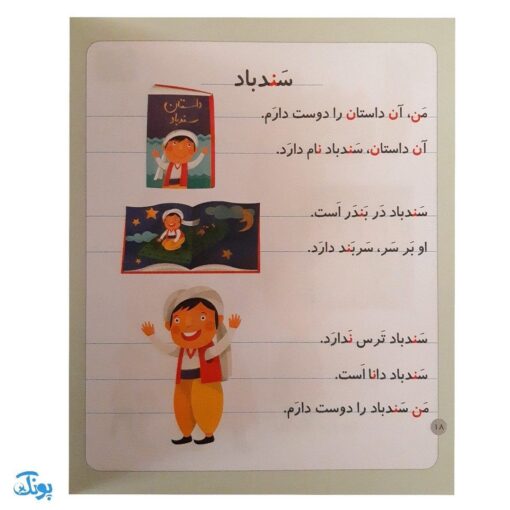 سَندباد
مَن، آن داستان را دوست دارَم.
آن داستان، سَندباد نام دارَد.
داستان
سندباد
سَندباد دَر بَندَر اَست.
او بَر سَر، سَربَند دارَد.
سَندباد تَرس نَدارَد.
سَندباد دانا اَست.
مَن سَندباد را دوست دارَم.
۱۸
پونک